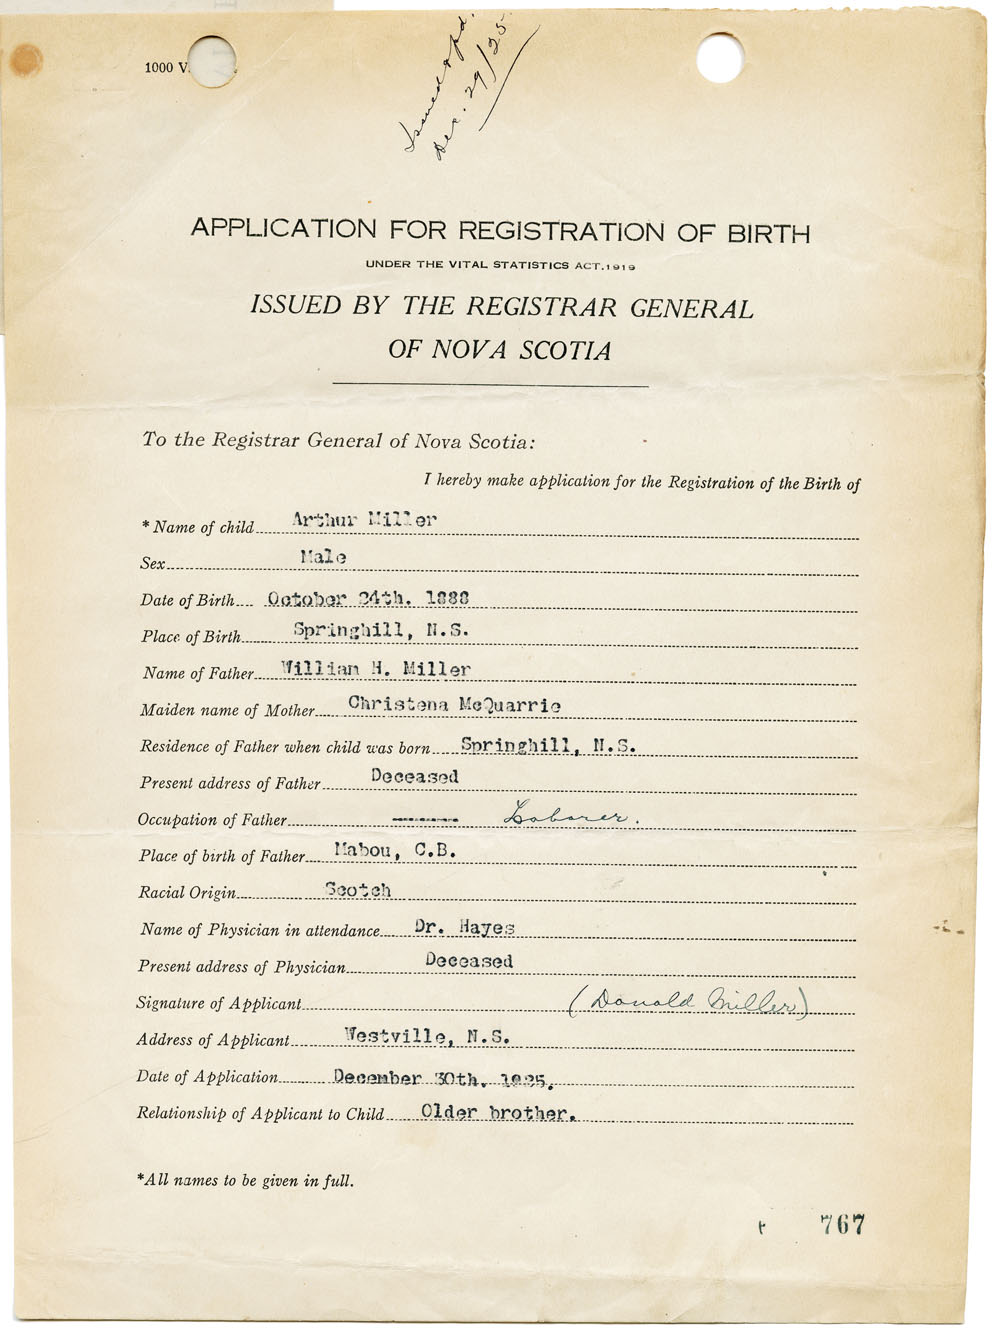 1000 V.
Issued & pd.
Dec. 29/25.
APPLICATION FOR REGISTRATION OF BIRTH
UNDER THE VITAL STATISTICS ACT.1919
ISSUED BY THE REGISTRAR GENERAL
OF NOVA SCOTIA
To the Registrar General of Nova Scotia:
I hereby make application for the Registration of the Birth of
* Name of child Arthur Miller
Sex Male
Date of Birth October 24th. 1888
Place of Birth Springhill, N.S.
Name of Father William H. Miller
Maiden name of Mother Christena McQuarrie
Residence of Father when child was born Springhill, N.S.
Present address of Father Deceased
Occupation of Father -------- Laborer.
Place of birth of Father Mabou, C.B.
Racial Origin Scotch
Name of Physician in attendance Dr. Hayes
Present address of Physician Deceased
Signature of Applicant (Donald Miller)
Address of Applicant Westville, N.S.
Date of Application December 30th. 1925.
Relationship of Applicant to Child Older brother.
*All names to be given in full.
767